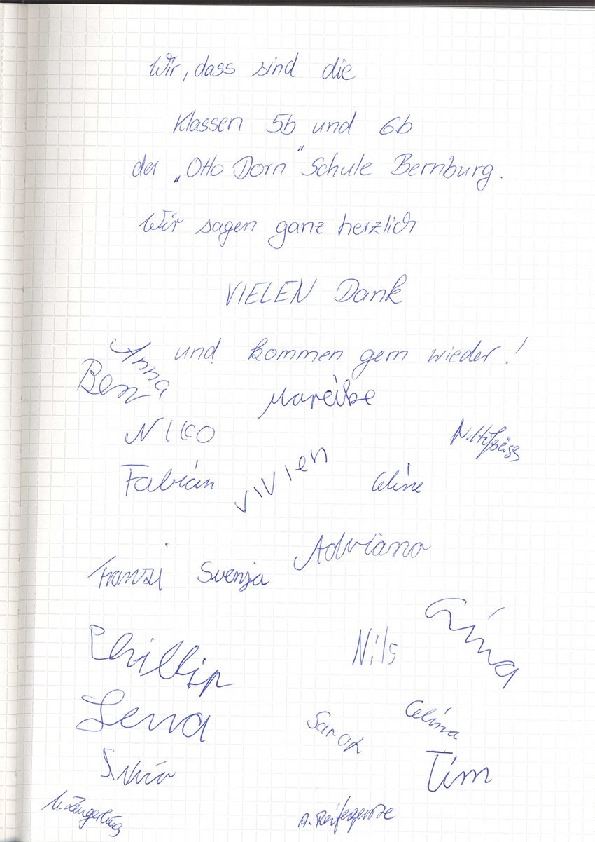 Wir, dass sind die
Klassen 5b und 6b
der „Otto Dorn" Schule Bernburg.
Wir sagen ganz herzlich
VIELEN Dank
und kommen gern wieder!
Anna
Ben
Mareike
Niko
Fabian
Vivien
Celine
Adriano
Franzi
Svenja
Gina
Phillip
Nils
Lena
Sarah
Celina
Tim